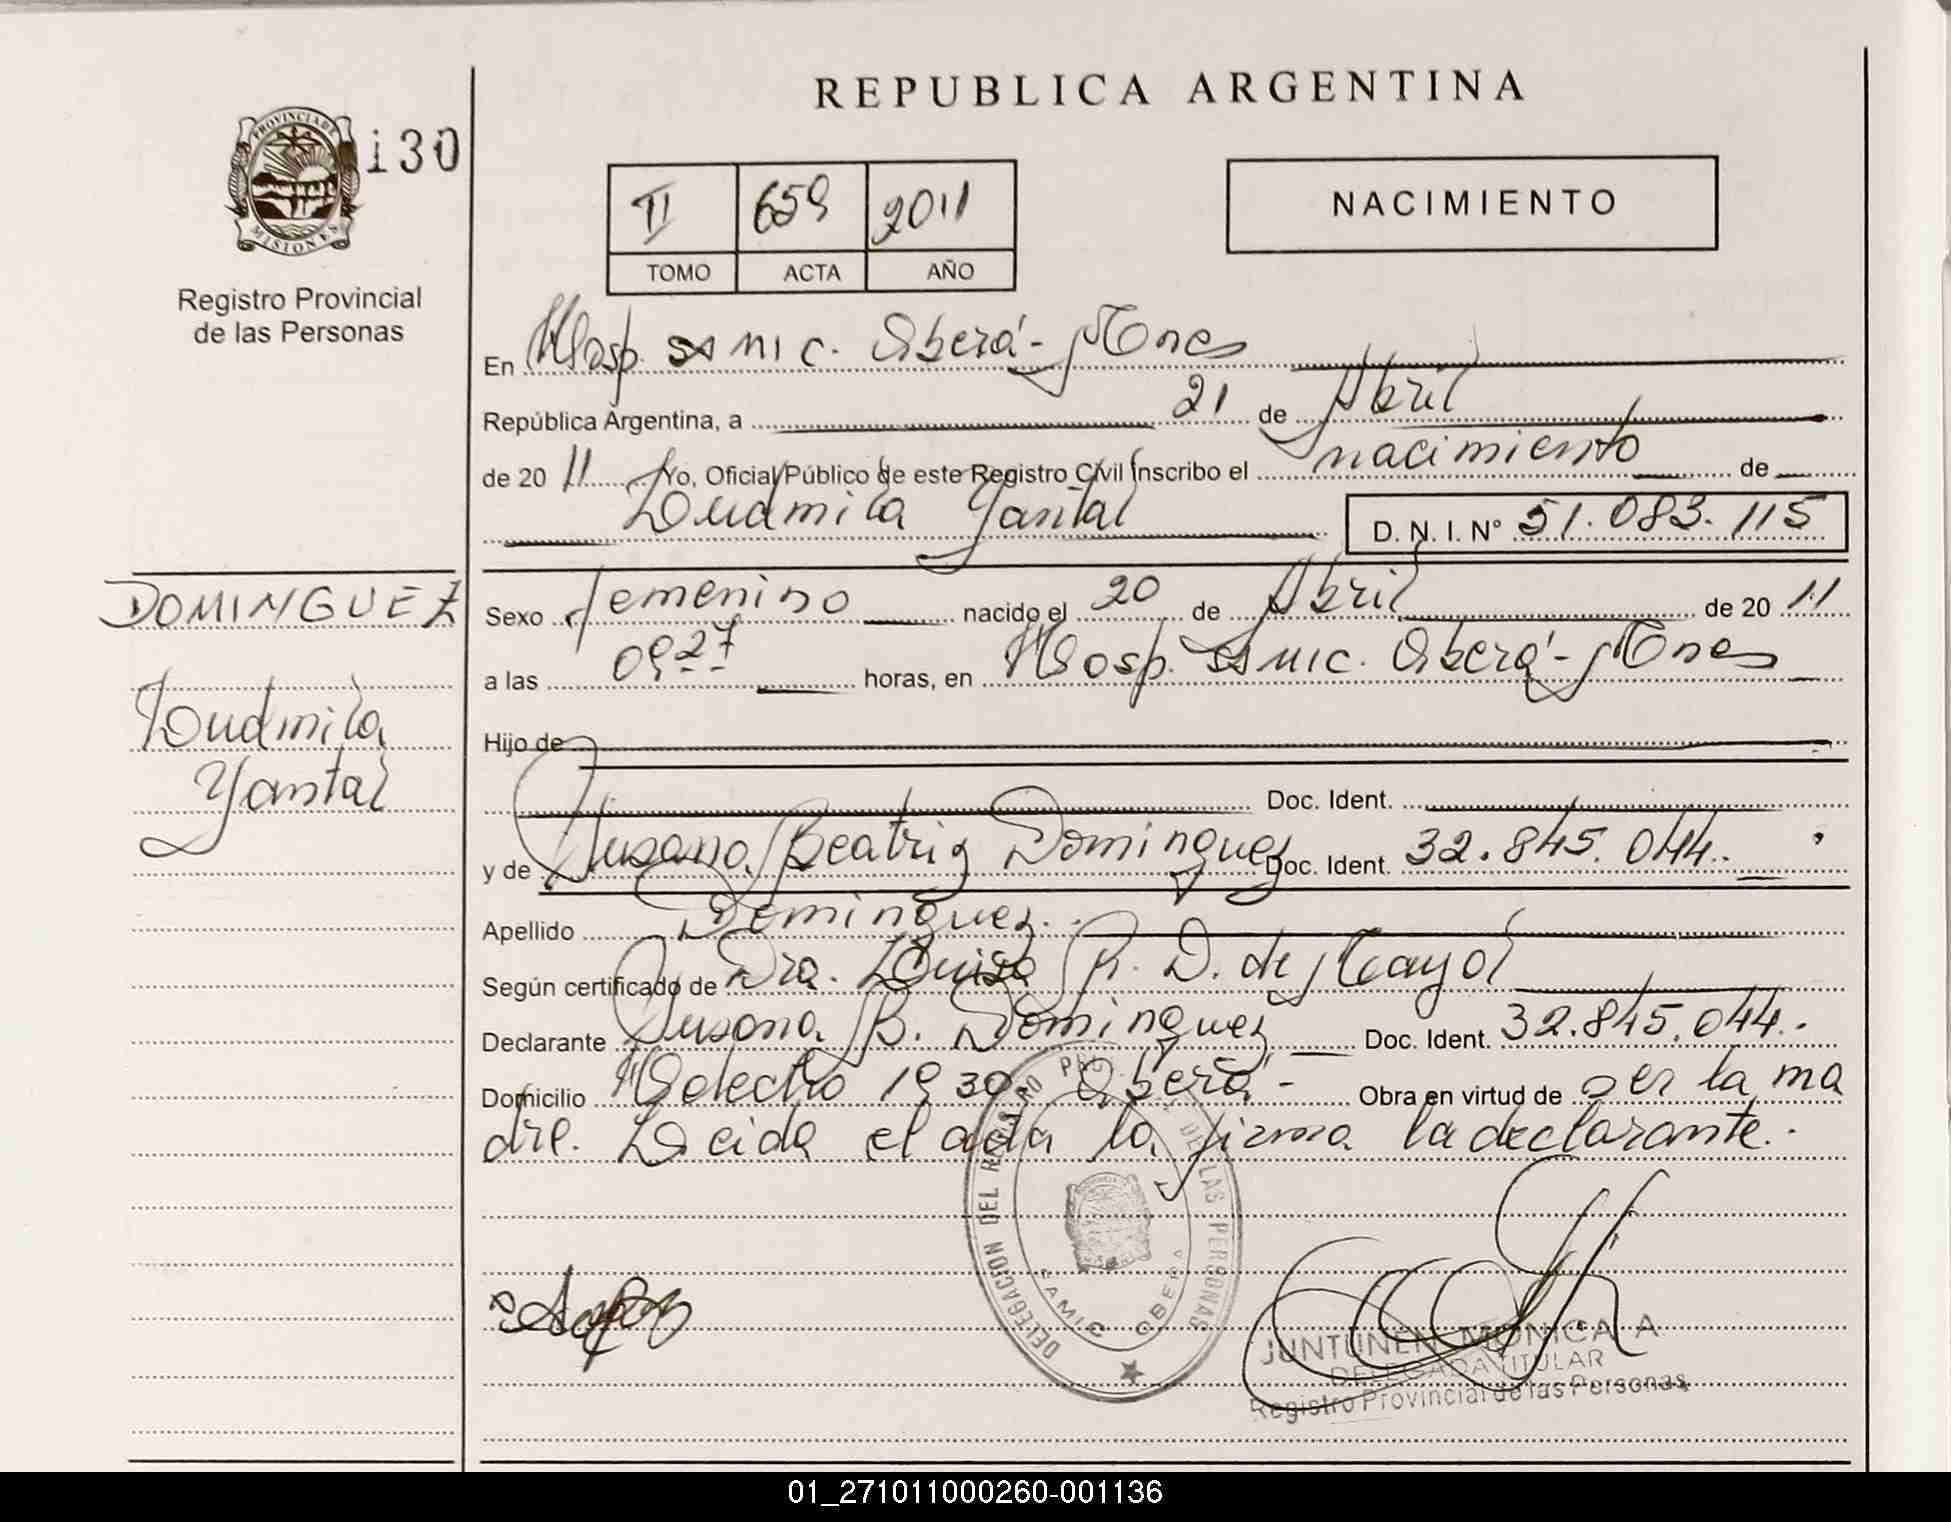 REPUBLICA ARGENTINA
PROVINCIA DE
MISIONES
130
Registro Provincial
de las Personas
II 659 2011
TOMO ACTA AÑO
NACIMIENTO
En Hosp. SAMIC. Oberá - Mnes
República Argentina, a 21 de Abril
de 20 11 Yo, Oficial Público de este Registro Civil Inscribo el nacimiento de
Ludmila Yantal
D. N. I. Nº 51.083.115
DOMINGUEZ
Ludmila
Yantal
Sexo femenino nacido el 20 de Abril de 20 11
a las 09 27 horas, en Hosp. SAMIC. Oberá - Mnes
Hijo de
Doc. Ident.
y de Susana Beatriz Dominguez Doc. Ident. 32.845.044.
Apellido Dominguez.
Según certificado de Dra. Luisa R. D. de Mayol
Declarante Susana B. Dominguez Doc. Ident. 32.845.044.
Domicilio 1930 Oberá - Obra en virtud de ser la ma
dre. Leida el acta la firma la declarante.
DELEGACION DEL DE LAS PERSONAS
SAMIC OBERA
JUNTUNEN MONICA A
DELEGADA TITULAR
Registro Provincial de las Personas
01_271011000260-001136